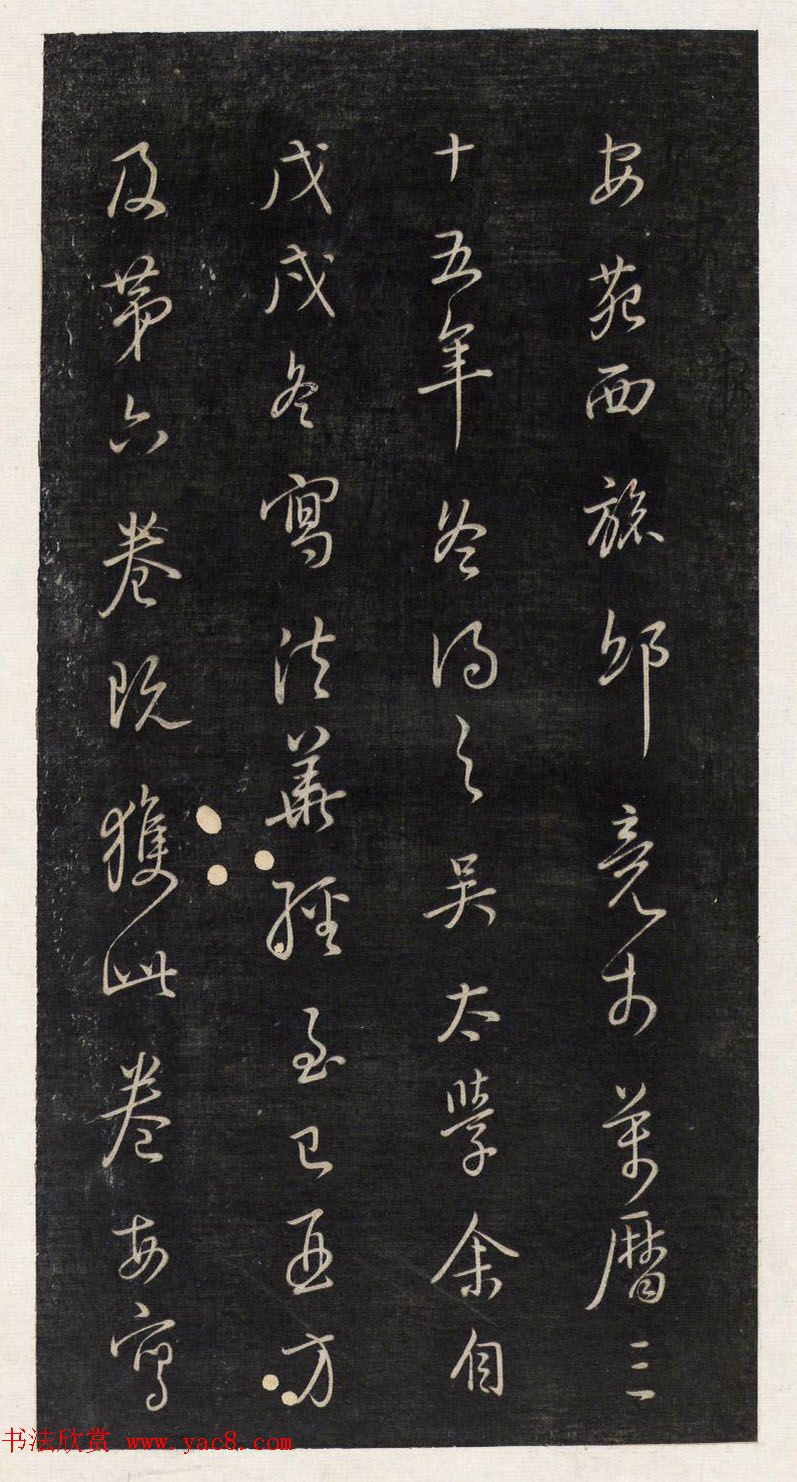 安苑西旅邸竟時萬曆三
十五年冬得之吳太學余自
戊戌冬寫法華經至己亥方
及第六卷既獲此卷每寫
书法欣赏 www.yac8.com